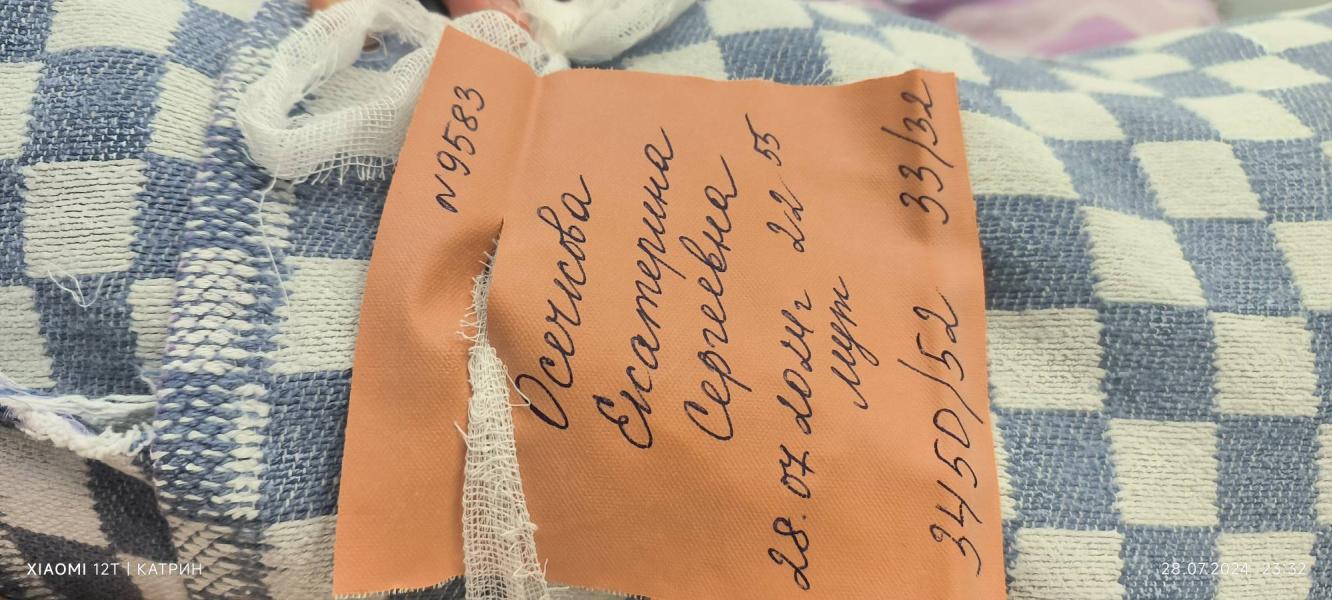 N9583
Осечкова
Екатерина
Сергеевна
28.07.2024г 22 55
муж
3450/52 33/32
XIAOMI 12T | КАТРИН
28.07.2024 23:32